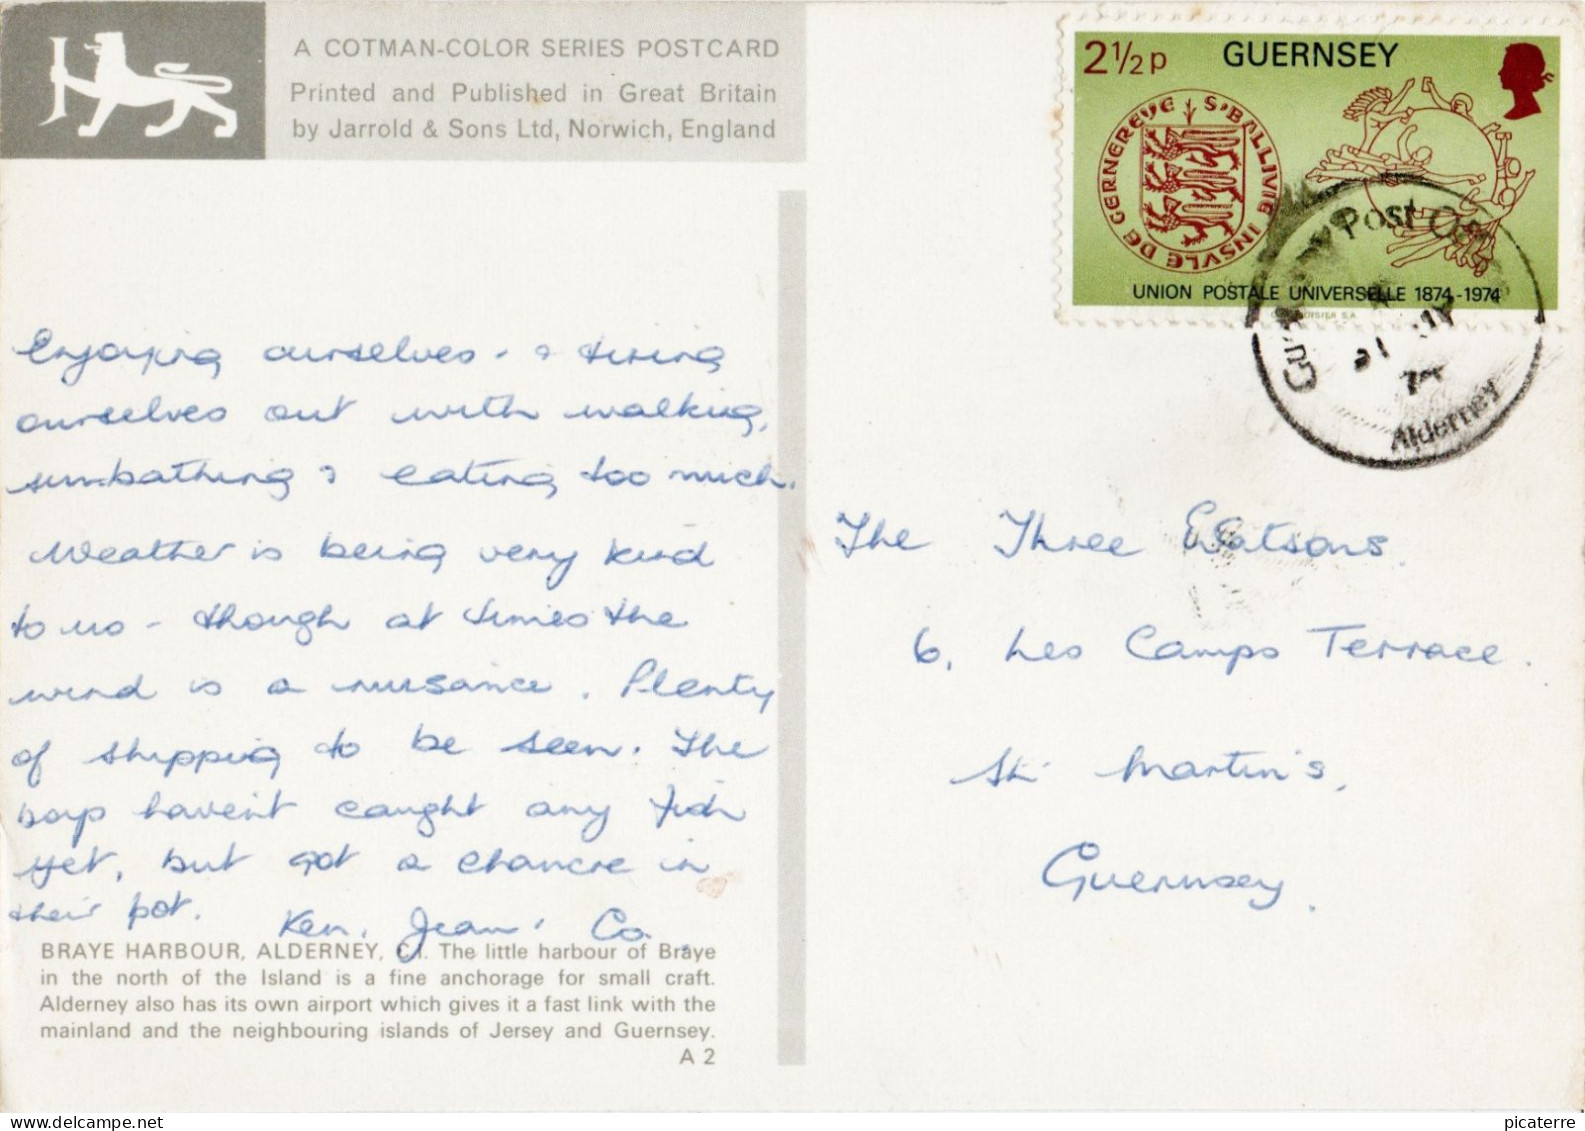 A COTMAN-COLOR SERIES POSTCARD
Printed and Published in Great Britain
by Jarrold & Sons Ltd, Norwich, England
2½p GUERNSEY
S'BALLIVIE INSVLE DE GERNEREYE
UNION POSTALE UNIVERSELLE 1874-1974
COURVOISIER S.A.
Post Office
21
Alderney
Enjoying ourselves - & tiring
ourselves out with walking,
sunbathing & eating too much.
Weather is being very kind
to us - though at times the
wind is a nuisance. Plenty
of shipping to be seen. The
boys haven't caught any fish
yet, but got a chancre in
their pot. Ken, Jean, Co.
The Three Watsons.
6, Les Camps Terrace.
St. Martin's,
Guernsey.
BRAYE HARBOUR, ALDERNEY, C.I. The little harbour of Braye
in the north of the Island is a fine anchorage for small craft.
Alderney also has its own airport which gives it a fast link with the
mainland and the neighbouring islands of Jersey and Guernsey.
A 2
picaterre